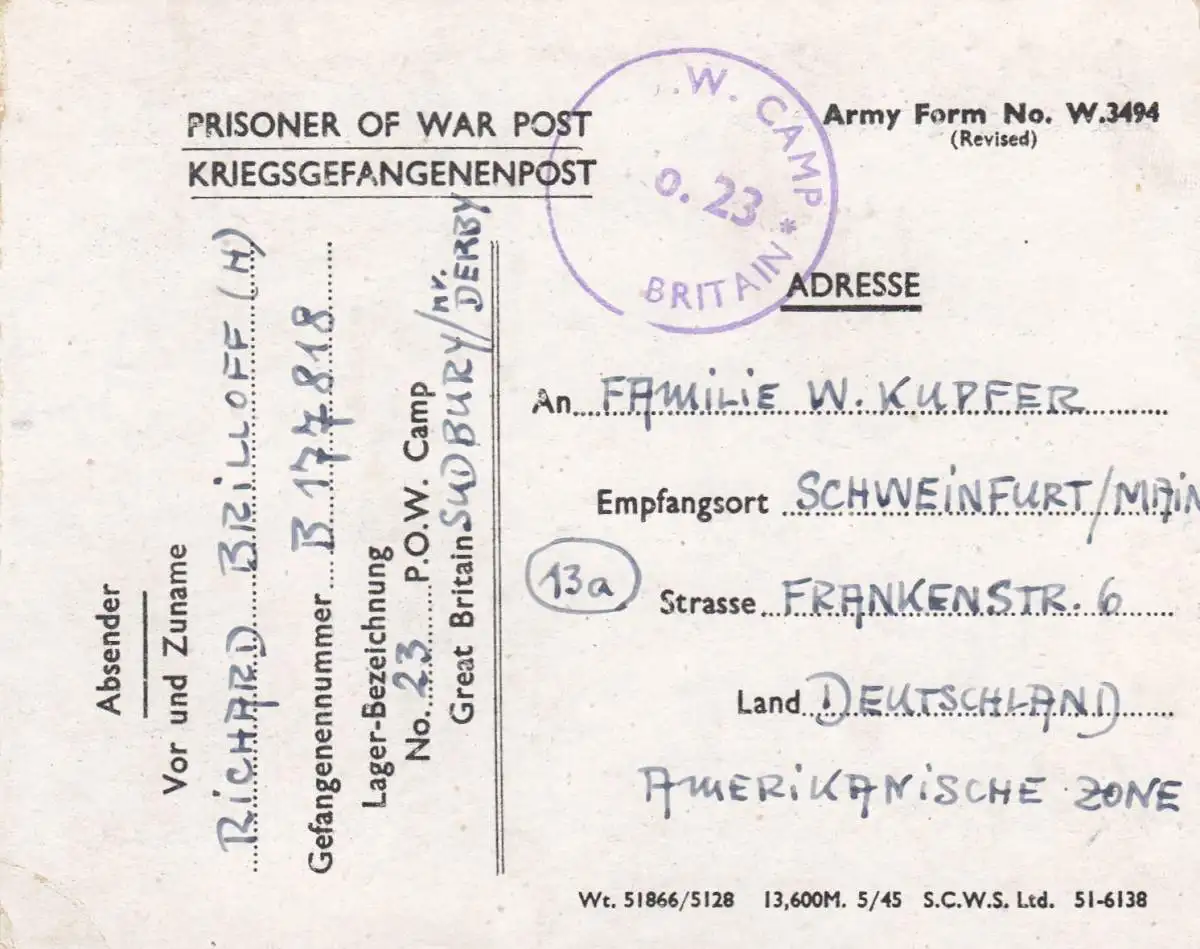 PRISONER OF WAR POST
KRIEGSGEFANGENENPOST
. W. CAMP
o. 23
BRITAIN *
Army Form No. W.3494
(Revised)
ADRESSE
An FAMILIE W. KUPFER
Empfangsort SCHWEINFURT/MAIN
13a
Strasse FRANKENSTR. 6
Land DEUTSCHLAND
AMERIKANISCHE ZONE
Absender
Vor und Zuname
RICHARD BRILLOFF (H)
Gefangenennummer B 177818
Lager-Bezeichnung
No. 23 P.O.W. Camp
Great Britain SUDBURY/nr. DERBY
Wt. 51866/5128 13,600M. 5/45 S.C.W.S. Ltd. 51-6138